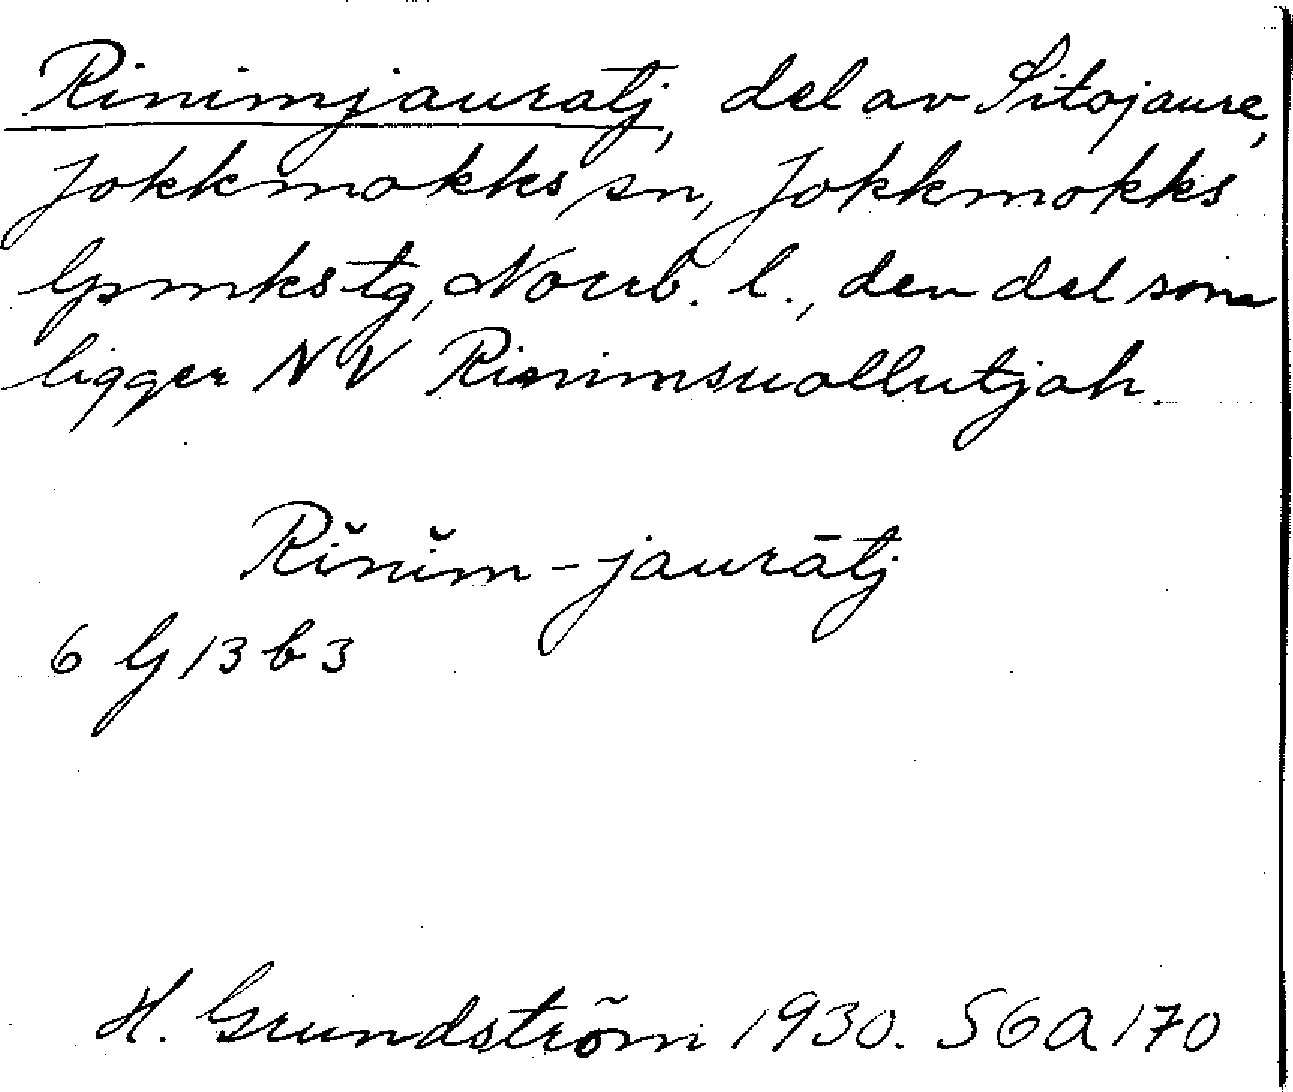 Rinimjauratj, del av Sitojaure,
Jokkmokks sn, Jokkmokks
lpmkstg, Norrb. l., den del som
ligger NV Rinimsuollutjah.
Rĭnĭm-jaurātj
6 G 13 b 3
H. Grundström 1930. SGA 170